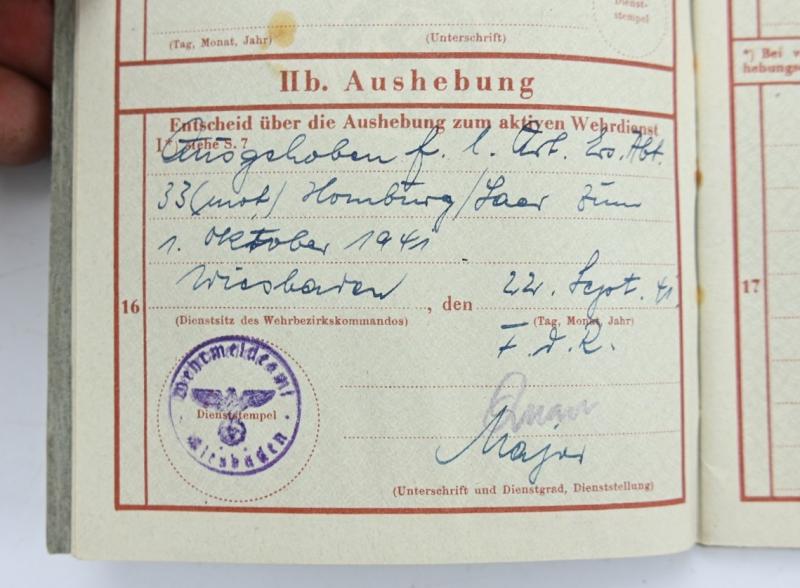 Dienst-
stempel
(Tag, Monat, Jahr)
(Unterschrift)
IIb. Aushebung
Entscheid über die Aushebung zum aktiven Wehrdienst
I*) siehe S. 7
Ausgehoben f. l. Art. Ers. Abt.
33 (mot) Homburg/Saar zum
1. Oktober 1941
Wiesbaden, den 22. Sept. 41
16
(Dienstsitz des Wehrbezirkskommandos)
(Tag, Monat, Jahr)
F. d. R.
Wehrmeldeamt
Dienststempel
Wiesbaden
Major
(Unterschrift und Dienstgrad, Dienststellung)
*) Bei
17